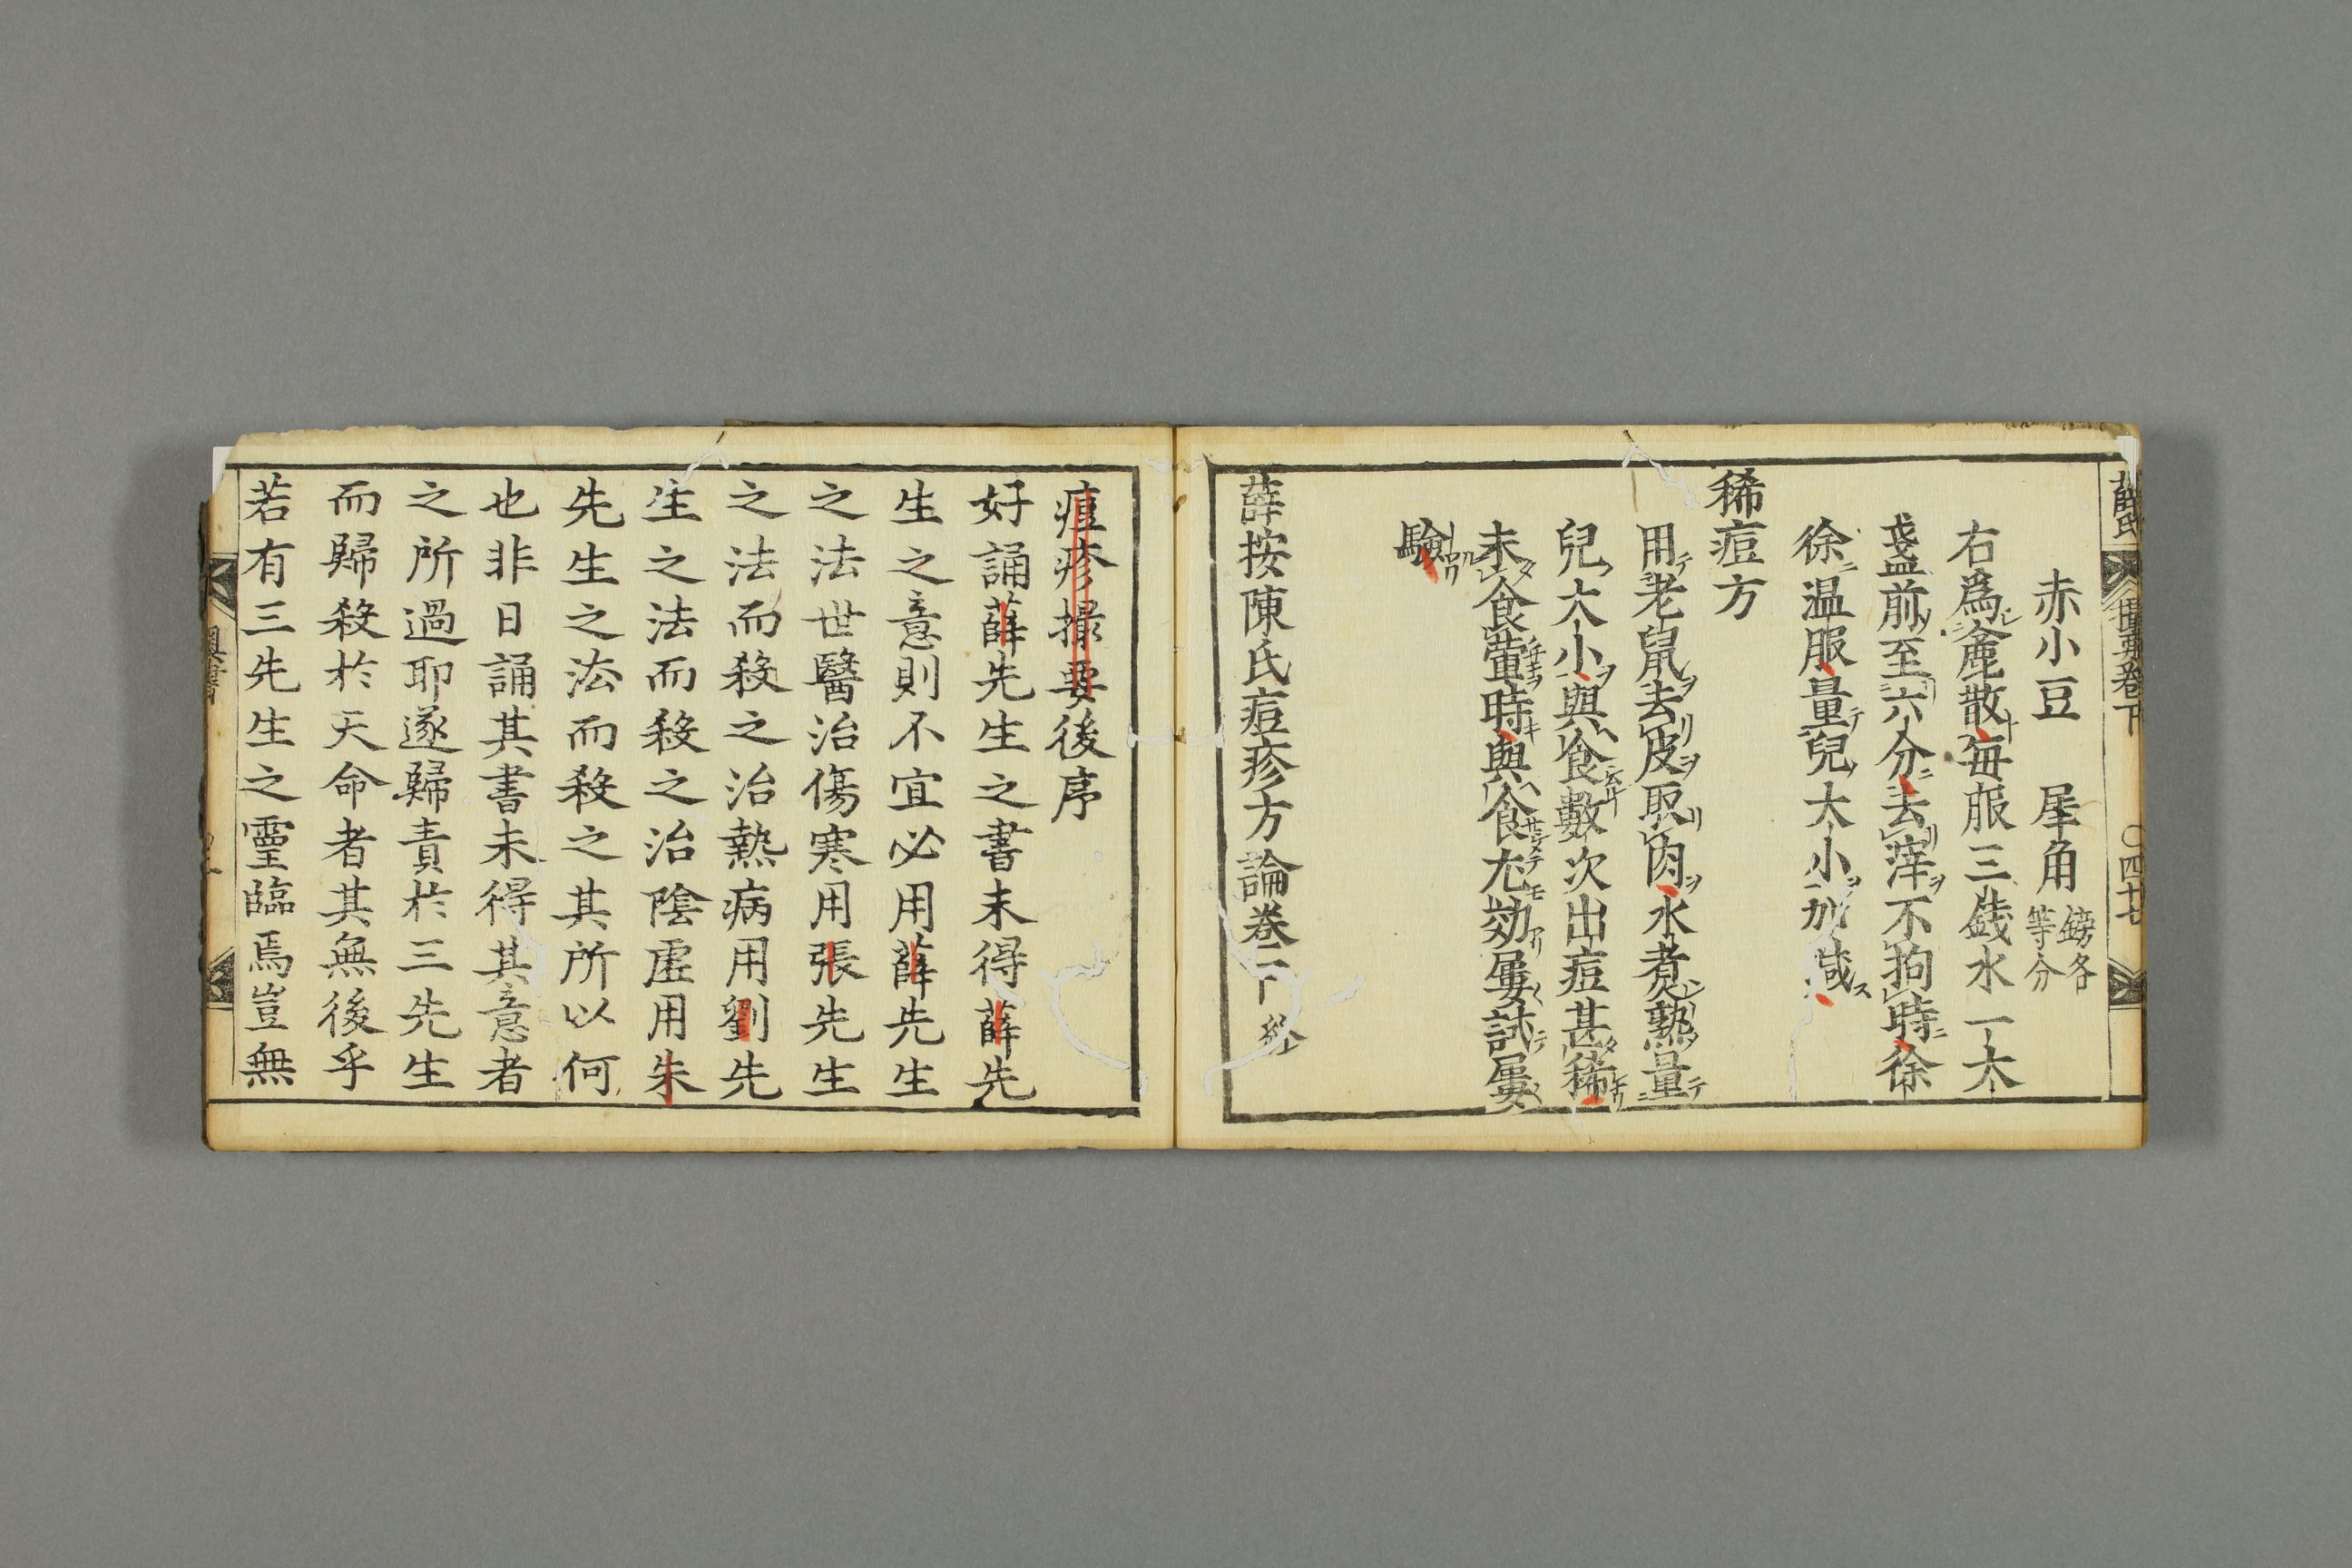 薛氏　撮要卷下　〇四十七
赤小豆　犀角　鎊各等分
右爲麄散毎服三錢水一大
盞前至六分去滓不拘時徐
徐温服量兒大小加減
稀痘方
用老鼠去皮取肉水煮熟量
兒大小與食數次出痘甚稀
未食葷時與食尤効屢試屢
驗
薛按陳氏痘疹方論卷下終
痘疹撮要後序
好誦薛先生之書未得薛先
生之意則不宜必用薛先生
之法世醫治傷寒用張先生
之法而殺之治熱病用劉先
生之法而殺之治陰虚用朱
先生之法而殺之其所以何
也非日誦其書未得其意者
之所過耶遂歸責於三先生
而歸殺於天命者其無後乎
若有三先生之靈臨焉豈無